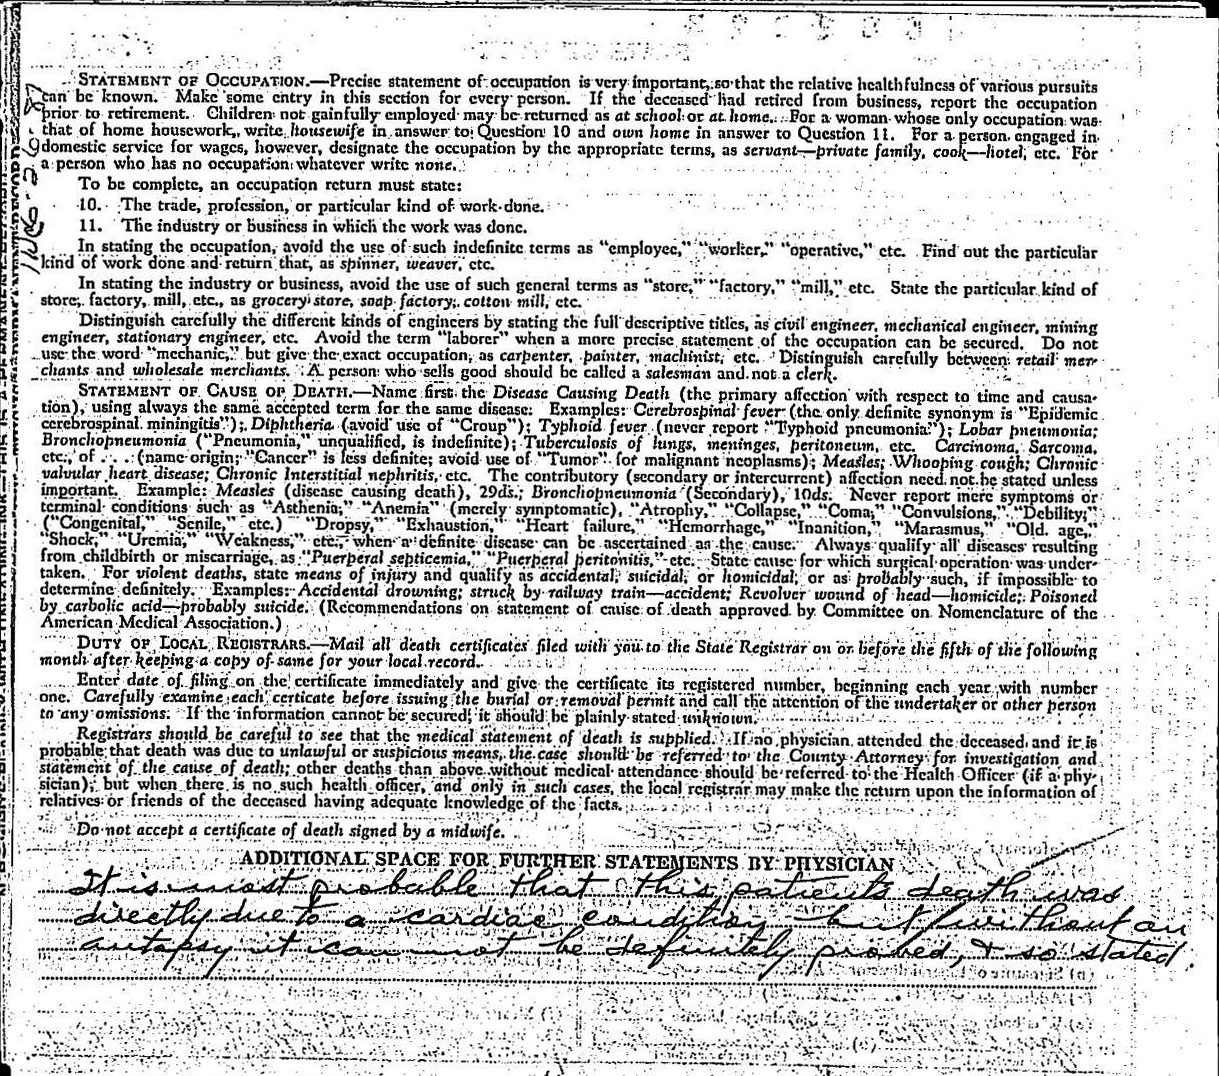 STATEMENT OF OCCUPATION.—Precise statement of occupation is very important, so that the relative healthfulness of various pursuits
can be known. Make some entry in this section for every person. If the deceased had retired from business, report the occupation
prior to retirement. Children not gainfully employed may be returned as at school or at home. For a woman whose only occupation was
that of home housework, write housewife in answer to Question 10 and own home in answer to Question 11. For a person engaged in
domestic service for wages, however, designate the occupation by the appropriate terms, as servant—private family, cook—hotel, etc. For
a person who has no occupation whatever write none.
To be complete, an occupation return must state:
10. The trade, profession, or particular kind of work done.
11. The industry or business in which the work was done.
In stating the occupation, avoid the use of such indefinite terms as "employee," "worker," "operative," etc. Find out the particular
kind of work done and return that, as spinner, weaver, etc.
In stating the industry or business, avoid the use of such general terms as "store," "factory," "mill," etc. State the particular kind of
store, factory, mill, etc., as grocery store, soap factory, cotton mill, etc.
Distinguish carefully the different kinds of engineers by stating the full descriptive titles, as civil engineer, mechanical engineer, mining
engineer, stationary engineer, etc. Avoid the term "laborer" when a more precise statement of the occupation can be secured. Do not
use the word "mechanic," but give the exact occupation, as carpenter, painter, machinist, etc. Distinguish carefully between retail mer-
chants and wholesale merchants. A person who sells good should be called a salesman and not a clerk.
STATEMENT OF CAUSE OF DEATH.—Name first the Disease Causing Death (the primary affection with respect to time and causa-
tion), using always the same accepted term for the same disease: Examples: Cerebrospinal fever (the only definite synonym is "Epidemic
cerebrospinal miningitis"); Diphtheria (avoid use of "Croup"); Typhoid fever (never report "Typhoid pneumonia"); Lobar pneumonia;
Bronchopneumonia ("Pneumonia," unqualified, is indefinite); Tuberculosis of lungs, meninges, peritoneum, etc. Carcinoma, Sarcoma,
etc., of . . . (name origin; "Cancer" is less definite; avoid use of "Tumor" for malignant neoplasms); Measles; Whooping cough; Chronic
valvular heart disease; Chronic Interstitial nephritis, etc. The contributory (secondary or intercurrent) affection need not be stated unless
important. Example: Measles (disease causing death), 29ds.; Bronchopneumonia (Secondary), 10ds. Never report mere symptoms or
terminal conditions such as "Asthenia," "Anemia" (merely symptomatic), "Atrophy," "Collapse," "Coma," "Convulsions," "Debility"
("Congenital," "Senile," etc.) "Dropsy," "Exhaustion," "Heart failure," "Hemorrhage," "Inanition," "Marasmus," "Old age,"
"Shock," "Uremia," "Weakness," etc., when a definite disease can be ascertained as the cause. Always qualify all diseases resulting
from childbirth or miscarriage, as "Puerperal septicemia," "Puerperal peritonitis," etc. State cause for which surgical operation was under-
taken. For violent deaths, state means of injury and qualify as accidental, suicidal, or homicidal; or as probably such, if impossible to
determine definitely. Examples: Accidental drowning; struck by railway train—accident; Revolver wound of head—homicide; Poisoned
by carbolic acid—probably suicide. (Recommendations on statement of cause of death approved by Committee on Nomenclature of the
American Medical Association.)
DUTY OF LOCAL REGISTRARS.—Mail all death certificates filed with you to the State Registrar on or before the fifth of the following
month after keeping a copy of same for your local record.
Enter date of filing on the certificate immediately and give the certificate its registered number, beginning each year with number
one. Carefully examine each certicate before issuing the burial or removal permit and call the attention of the undertaker or other person
to any omissions. If the information cannot be secured, it should be plainly stated unknown.
Registrars should be careful to see that the medical statement of death is supplied. If no physician attended the deceased and it is
probable that death was due to unlawful or suspicious means, the case should be referred to the County Attorney for investigation and
statement of the cause of death; other deaths than above without medical attendance should be referred to the Health Officer (if a phy-
sician); but when there is no such health officer, and only in such cases, the local registrar may make the return upon the information of
relatives or friends of the deceased having adequate knowledge of the facts.
Do not accept a certificate of death signed by a midwife.
ADDITIONAL SPACE FOR FURTHER STATEMENTS BY PHYSICIAN
It is most probable that this patients death was
directly due to a cardiac condition but without an
autopsy it can not be definitely proved, & so stated.